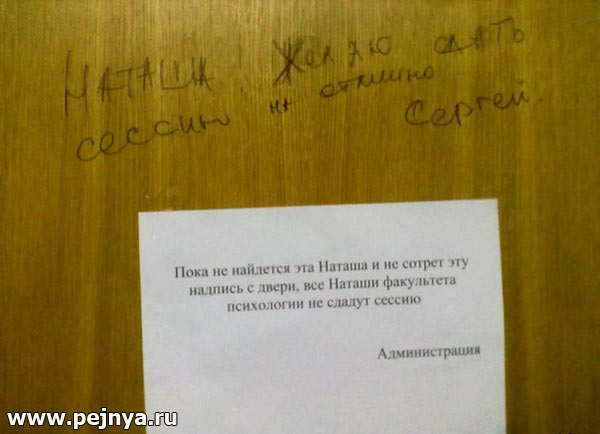 Наташа! Желаю сдать
сессию на отлично
Сергей.
Пока не найдется эта Наташа и не сотрет эту
надпись с двери, все Наташи факультета
психологии не сдадут сессию
Администрация
www.pejnya.ru